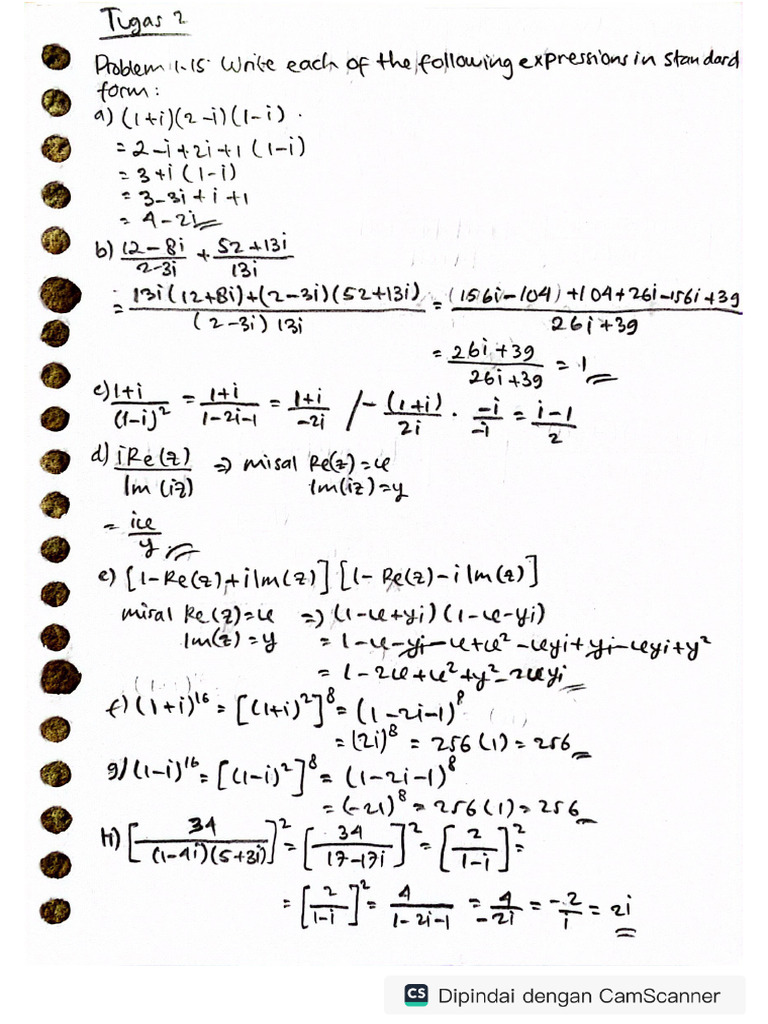 Tugas 2
Problem 1.15 Write each of the following expressions in standard
form :
a) (1+i)(2-i)(1-i) .
= 2-i+2i+1 (1-i)
= 3+i (1-i)
= 3-3i+i+1
= 4-2i
b) (12-8i)/(2-3i) + (52+13i)/(13i)
= (13i(12+8i)+(2-3i)(52+13i))/((2-3i) 13i) = ((156i-104)+104+26i-156i+39)/(26i+39)
= (26i+39)/(26i+39) = 1
c) (1+i)/(1-i)² = (1+i)/(1-2i-1) = (1+i)/(-2i) / -(1+i)/(2i) . (-i)/(-i) = (i-1)/2
d) (i Re(z))/(Im (iz)) => misal Re(z)=x
Im(iz)=y
= ix/y
e) [1-Re(z)+iIm(z)] [1-Re(z)-iIm(z)]
misal Re(z)=x => (1-x+yi)(1-x-yi)
Im(z)=y = 1-x-yi-x+x²-xyi+yi-xyi+y²
= 1-2x+x²+y²-2xyi
f) (1+i)¹⁶ = [(1+i)²]⁸ = (1-2i-1)⁸
= (2i)⁸ = 256(1) = 256
g) (1-i)¹⁶ = [(1-i)²]⁸ = (1-2i-1)⁸
= (-2i)⁸ = 256(1) = 256
H) [34/((1-4i)(5+3i))]² = [34/(17-17i)]² = [2/(1-i)]² =
= [2/(1-i)]² = 4/(1-2i-1) = 4/(-2i) = -2/i = 2i
CS Dipindai dengan CamScanner